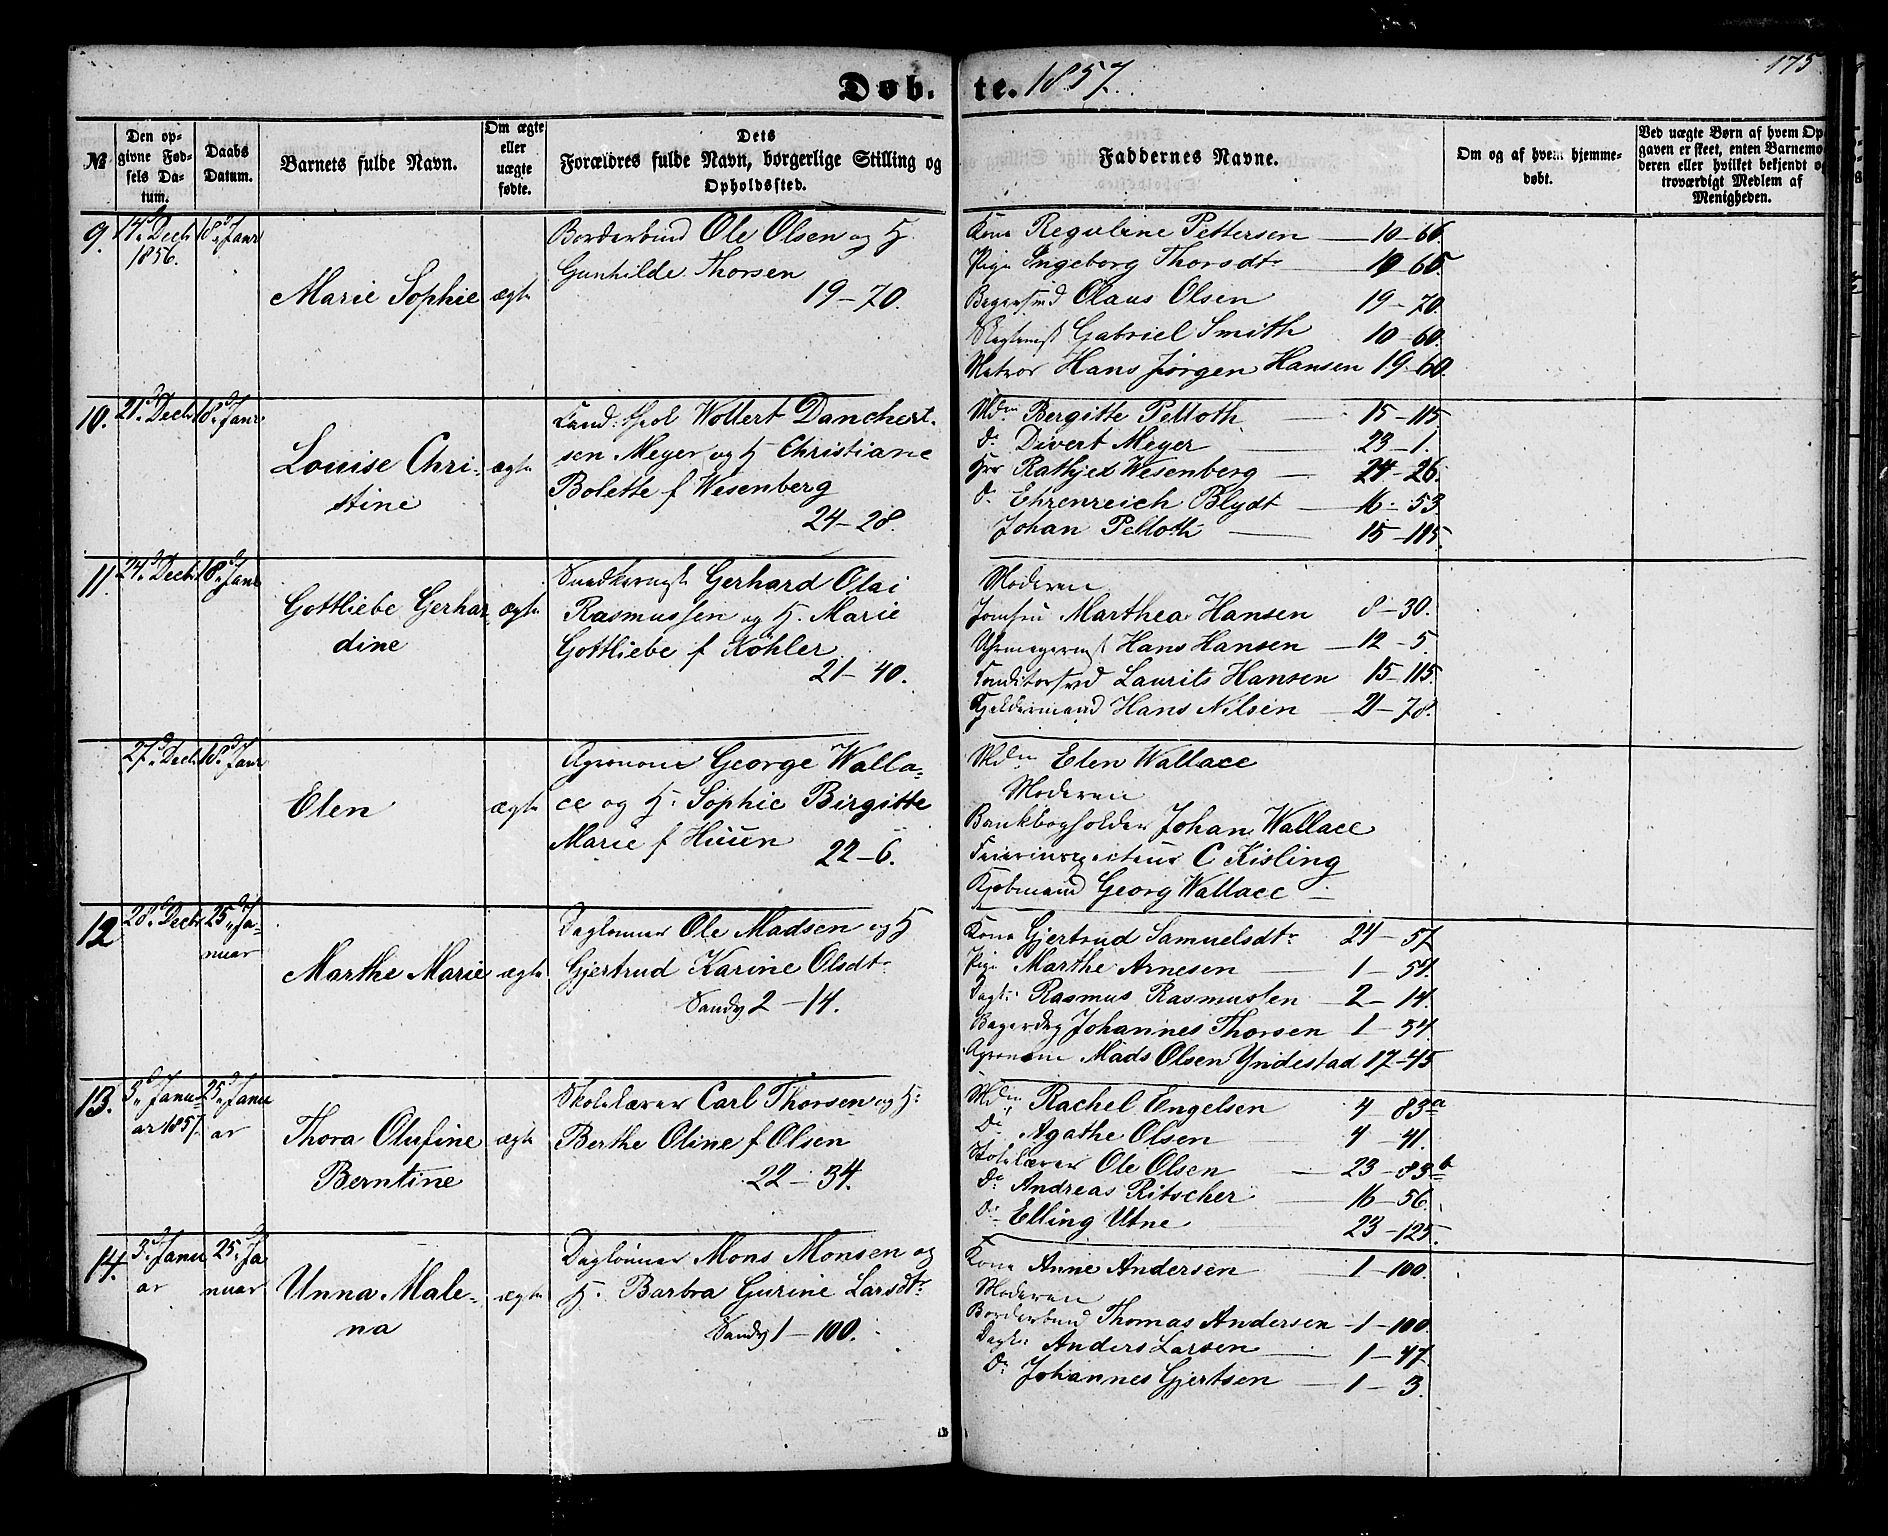 175
Døb. te. 1857.
№
Den opgivne Fødsels Datum.
Daabs Datum.
Barnets fulde Navn.
Om ægte eller uægte fødte.
Dets Forældres fulde Navn, borgerlige Stilling og Opholdssted.
Faddernes Navne.
Om og af hvem hjemmedøbt.
Ved uægte Børn af hvem Opgaven er skeet, enten Barnemoderen eller hvilket bekjendt og troværdigt Medlem af Menigheden.
9. 14d Decbr 1856. 18d Januar
Marie Sophie ægte
Ole Olsen og H
Gunhilde Thorsen
19-70.
Kone Reguline Pettersen 10-66.
Pige Ingeborg Thorsdtr 10-65
Bagersvd Olaus Olsen 19-70.
Gabriel Smith 10-60.
Matros Hans Jørgen Hansen 19-60.
10. 21d Decbr 18d Januar
Louise Christine ægte
Cand: theol Wollert Danchert-
sen Meyer og H Christiane
Bolette f Wesenberg
24-28.
Mdm Bergitte Peltoth 15-115
do Divert Meyer 23-1.
Hrr Rathjes Wesenberg 24-26.
do Ehrenreich Blydt 16-53
Johan Peltoth 15-115.
11. 24d Decbr 18d Januar
Gottliebe Gerhardine ægte
Snedkermst Gerhard Olai
Rasmussen og H. Marie
Gottliebe f Köhler
21-40.
Moderen
Jomfru Marthea Hansen 8-30.
Uhrmagermst Hans Hansen 12-5.
Conditorsvd Laurits Hansen 15-115.
Kjeldermand Hans Nilsen 21-78.
27d Decbr 18d Januar
Elen ægte
Agronom George Walla-
ce og H. Sophie Birgitte
Marie f Huun
22-6.
Mdm Elen Wallace
Moderen
Bankbogholder Johan Wallace
C Kisling
Kjøbmand Georg Wallace
12 28d Decbr 25d Januar
Marthe Marie ægte
Daglønner Ole Madsen og H
Gjertrud Karine Olsdtr
Sandv 2-14.
Kone Gjertrud Samuelsdtr 24-57
Pige Marthe Arnesen 1-54.
Dagl: Rasmus Rasmussen 2-14.
Johannes Thorsen 1-54.
Agronom Mads Olsen Yndestad 17-45
13. 3d Januar 1857. 25d Januar
Thora Olufine Berntine ægte
Skolelærer Carl Thorsen og H:
Berthe Oline f Olsen
22-34.
Mdm Rachel Engelsen 4-83a
do Agathe Olsen 4-41.
Skolelærer Ole Olsen 23-83b
do Andreas Ritscher 16-56.
do Elling Utne 23-125.
14. 3d Januar 25d Januar
Unna Malena ægte
Daglønner Mons Monsen og
H. Barbra Gurine Larsdtr
Sandv 1-100.
Kone Anne Andersen 1-100.
Moderen
Thomas Andersen 1-100.
Dagl: Anders Larsen 1-47.
do Johannes Gjertsen 1-3.